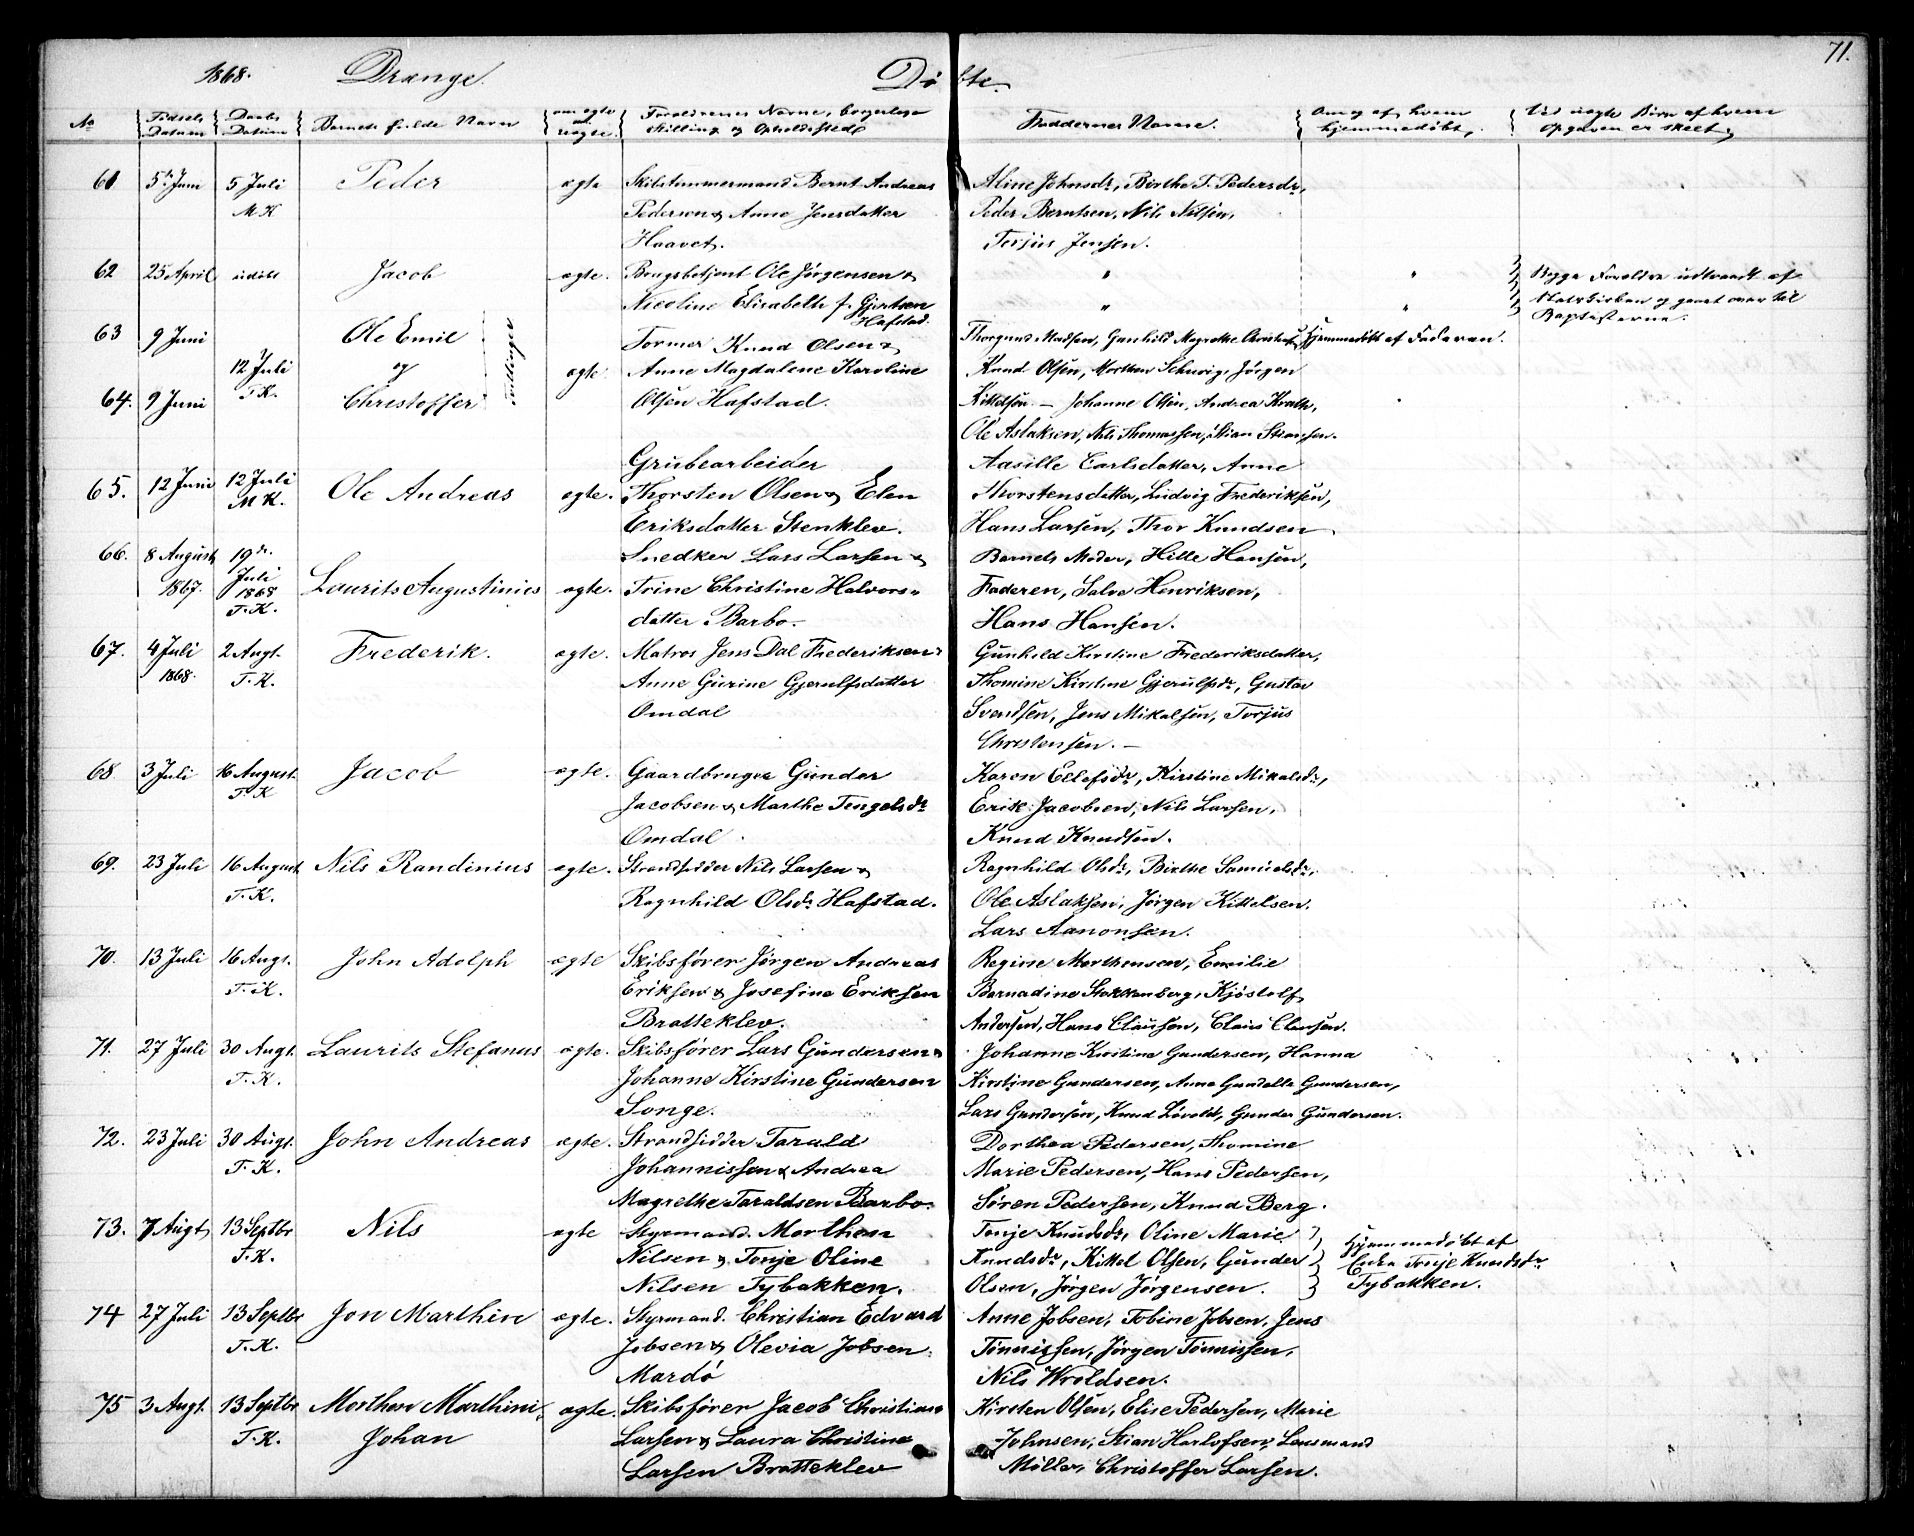 71.
1868. Drenge. Døbte.
No Fødsels Datum Daabs Datum Barnets fulde Navn om ægte el. uægte. Forældrenes Navne, borgerlige Stilling og Opholdssted Faddernes Navne. Om og af hvem hjemmedøbt. Ved uægte Børn af hvem Opgaven er skeet.
61 5te Juni 5 Juli Peder ægte Skibstømmermand Bernt Andreas Aline Johnsdr, Birthe T. Pedersdr,
M K Pedersen & Anne Jensdatter Peder Berntsen, Nils Nilsen,
Haavet. Terjus Jensen.
62 25 April udøbt Jacob ægte. Brugsbetjent Ole Jørgensen & " " Begge Forældre udtraadt af
Nicoline Elisabeth f. Gjertsen " " Statskirken og gaaet over til
Hafstad. Baptisterne.
63 9 Juni Ole Emil Former Knud Olsen & Thorgund Madsen, Gunhild Magrethe Hjemmedøbt af Faderen.
12 Juli og tvillinger ægte Anne Magdalene Karoline Knud Olsen, Morthen Schuvig, Jørgen
64. 9 Juni T. K. Christoffer Olsen Hafstad. Kittelsen. — Johanne Olsen, Andrea
Ole Aslaksen, Nils Thomassen, Stian Stiansen.
Grubearbeider Aasille Carlsdatter, Anne
65. 12 Juni 12 Juli Ole Andreas ægte. Thorsten Olsen & Elen Thorstensdatter, Ludvig Frederiksen,
M K. Eriksdatter Stenklev. Hans Larsen, Thor Knudsen
66. 8 August 19de Snedker Lars Larsen & Barnets Moder, Hille Hansen,
1867. Juli 1868 Laurits Augustinius ægte. Trine Christine Halvors- Faderen, Salve Henriksen,
T. K. datter Barbo. Hans Hansen.
67. 4 Juli 2 Augt. Frederik. ægte. Matros Jens Dal Frederiksen & Gunhild Kirstine Frederiksdatter,
1868. T. K. Anne Gurine Gjerulfsdatter Thomine Kirstine Gjerulfsdr, Gustav
Omdal Svendsen, Jens Mikalsen, Torjus
Christensen. —
68 3 Juli 16 August. Jacob ægte. Gaardbruger Gunder Karen Ellefsdr, Kirstine Mikalsdr,
T. K Jacobsen & Marthe Tengelsdr Erik Jacobsen, Nils Larsen,
Omdal. Knud Knudsen.
69. 23 Juli 16 August Nils Randinius ægte. Strandsidder Nils Larsen & Ragnhild Olsdr, Birthe Samuelsdr,
T. K. Ragnhild Olsdr Hafstad. Ole Aslaksen, Jørgen Kittelsen.
Lars Aanonsen.
70. 13 Juli 16 Augt. John Adolph ægte Skibsfører Jørgen Andreas Regine Morthensen, Emilie
T. K. Eriksen & Josefine Eriksen Bernadine Stokkenberg, Kjøstolf
Bratteklev. Andersen, Hans Clausen, Claus Clausen.
71. 27 Juli 30 Augt. Laurits Stefanus ægte. Skibsfører Lars Gundersen & Johanne Kirstine Gundersen, Hanna
T. K. Johanne Kirstine Gundersen Kirstine Gundersen, Anne Gundelle Gundersen,
Songe. Lars Gundersen, Knud Løvold, Gunder Gundersen.
72. 23 Juli 30 Augt. John Andreas ægte. Strandsidder Tarald Dorthea Pedersen, Thomine
T. K. Johannissen & Andrea Marie Pedersen, Hans Pedersen,
Magrethe Taraldsen Barbo. Søren Pedersen, Knud Berg.
73. 7 Augt 13 Septbr Nils ægte Styrmand Morthen Tonje Knudsdr, Oline Marie Hjemmedøbt af
T. K. Nilsen & Tonje Oline Knudsdr, Kittel Olsen, Gunder Enke Tonje Knudsdr
Nilsen Tybakken. Olsen, Jørgen Jørgensen. Tybakken.
74 27 Juli 13 Septbr Jon Marthin ægte. Styrmand. Christian Edvard Anne Jobsen, Tobine Jobsen, Jens
T. K. Jobsen & Olevia Jobsen. Tønnissen, Jørgen Tønnissen,
Mardø Nils Wroldsen.
75 3 Augt. 13 Septbr Morthen Marthini ægte. Skibsfører Jacob Christian Kirsten Olsen, Elise Pedersen, Marie
T. K. Johan Larsen & Laura Christine Johnsen, Stian Harlofsen, Lensmand
Larsen Bratteklev Møller, Christoffer Larsen.